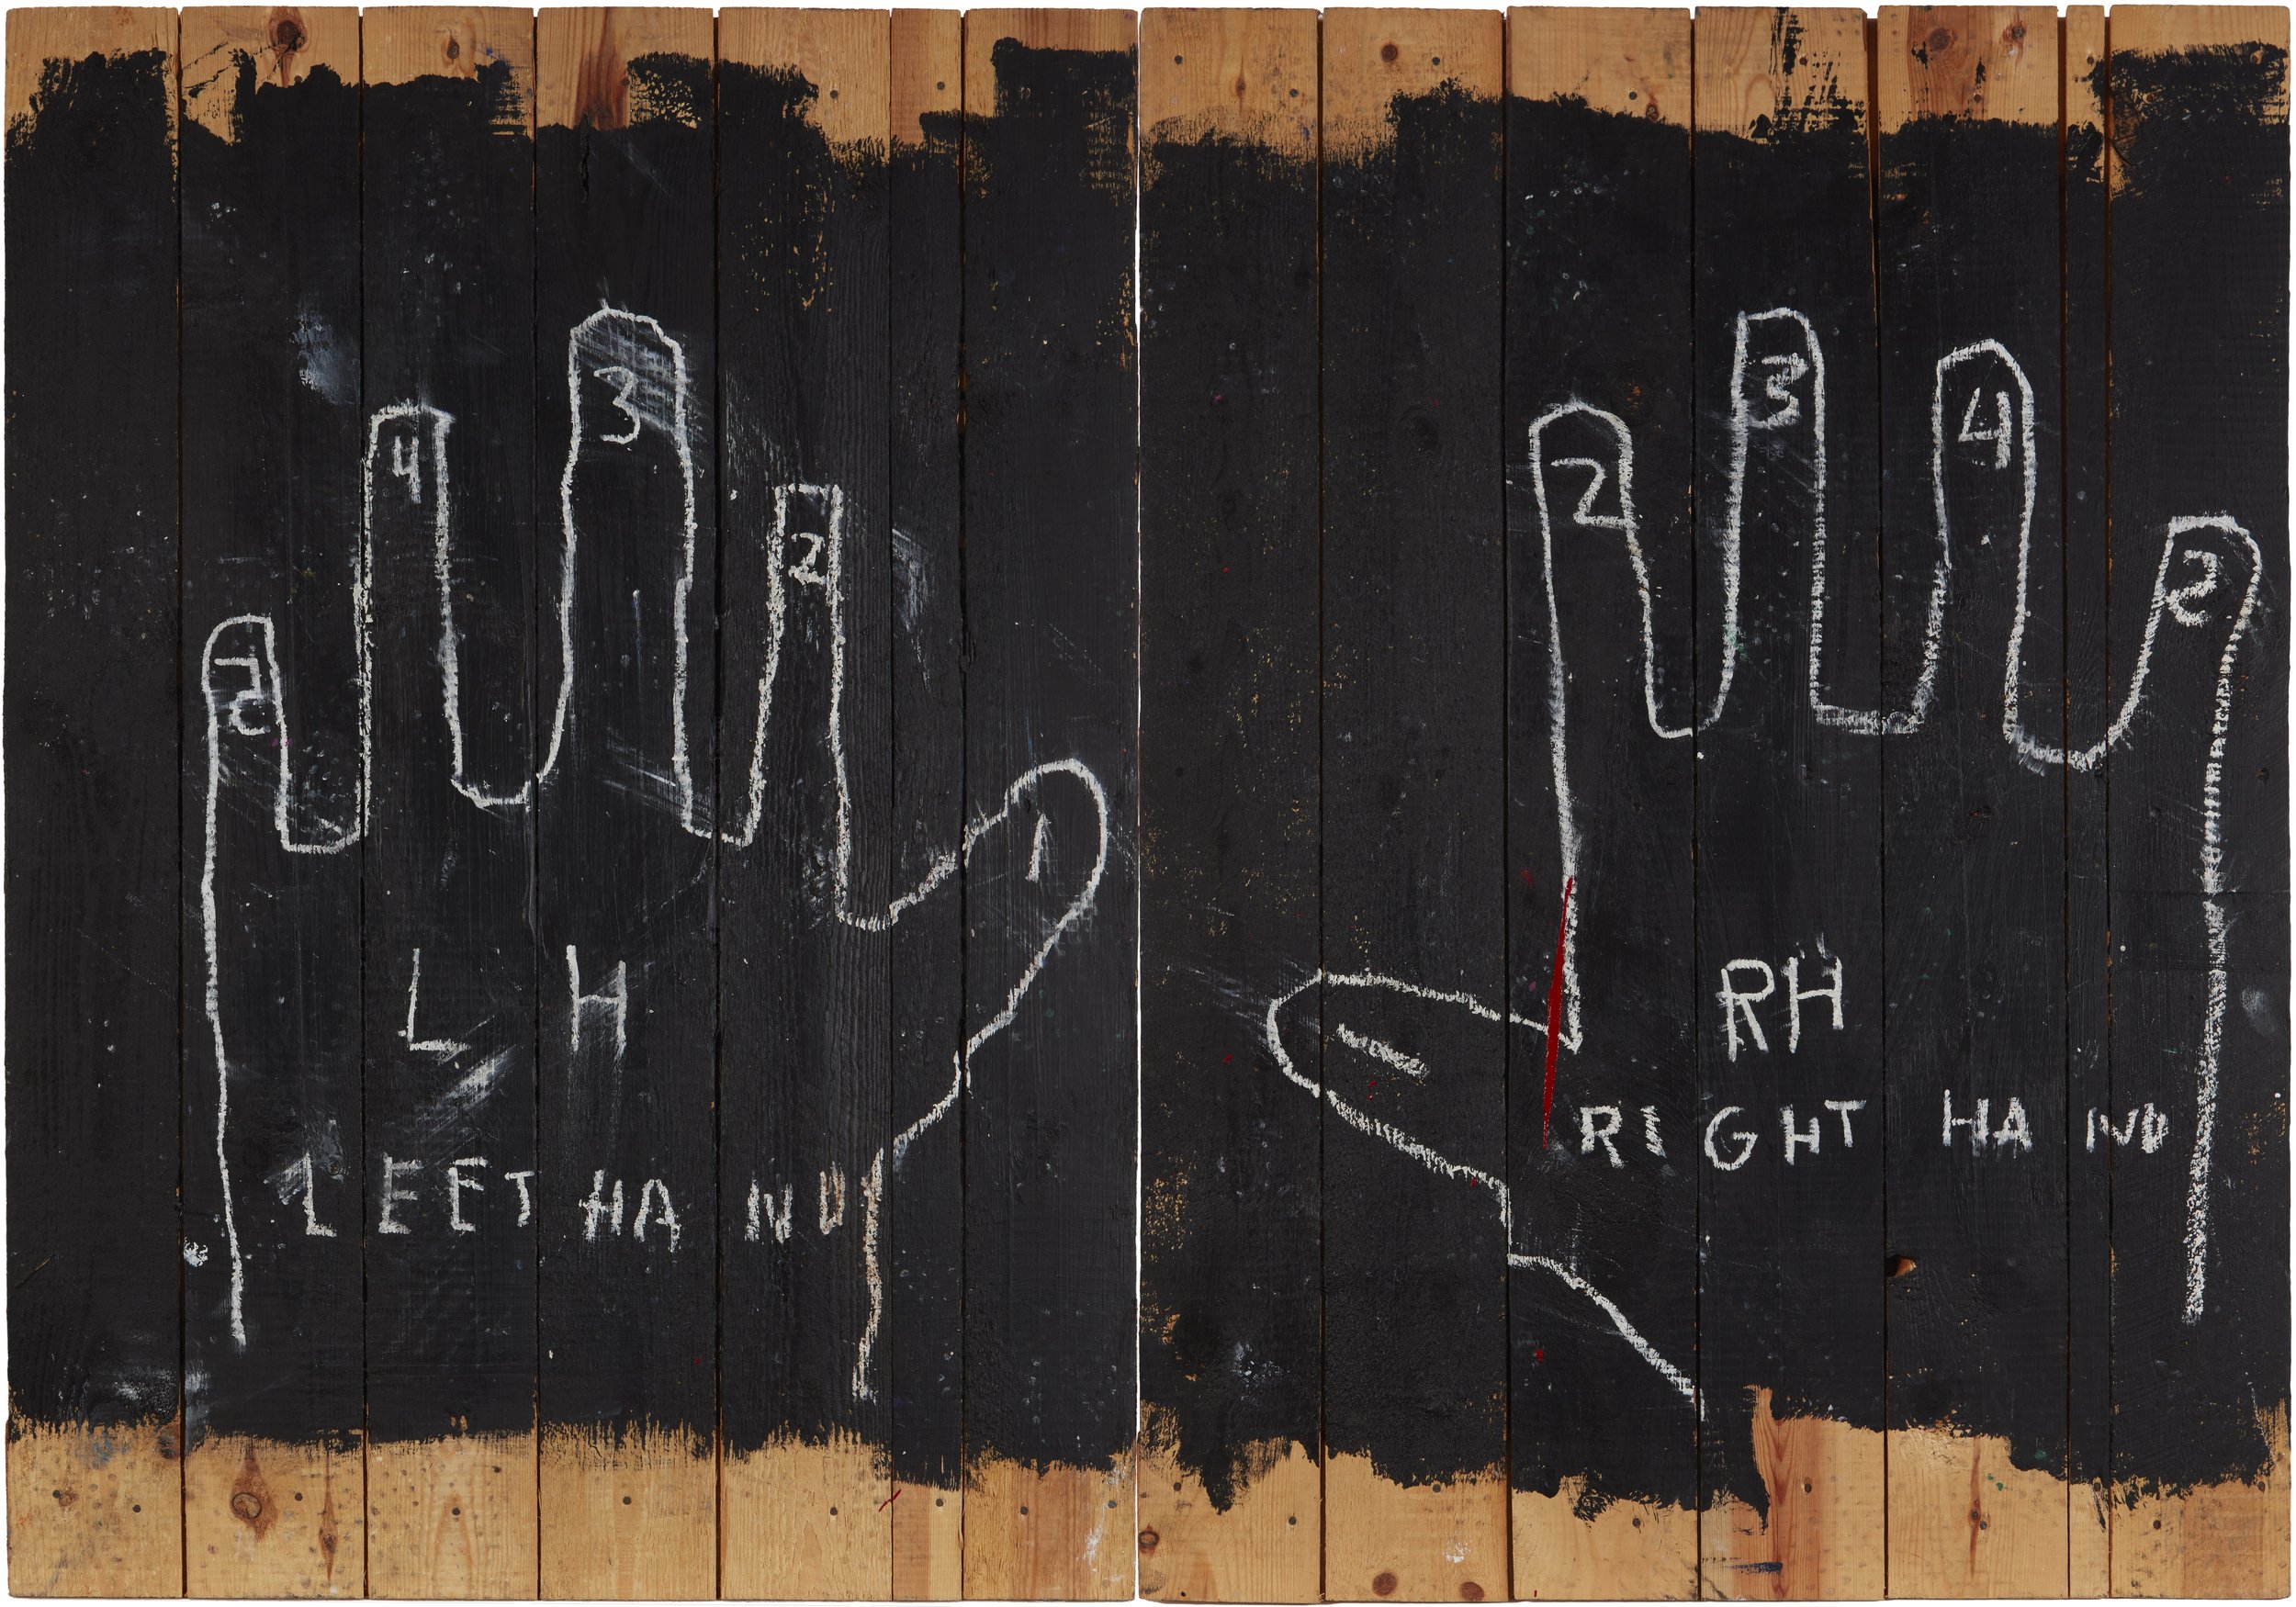 5 4 3 2 1
L H
LEFT HAND
1 2 3 4 5
RH
RIGHT HAND